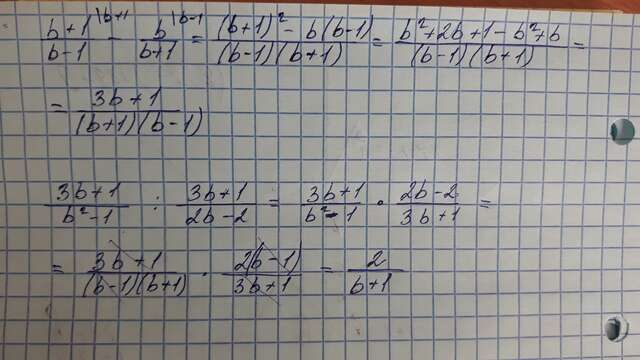 (b+1)/(b-1) \b+1 - b/(b+1) \b-1 = ((b+1)² - b(b-1))/((b-1)(b+1)) = (b²+2b+1-b²+b)/((b-1)(b+1)) =
= (3b+1)/((b+1)(b-1))
(3b+1)/(b²-1) : (3b+1)/(2b-2) = (3b+1)/(b²-1) · (2b-2)/(3b+1) =
= (3b+1)/((b-1)(b+1)) · (2(b-1))/(3b+1) = 2/(b+1)